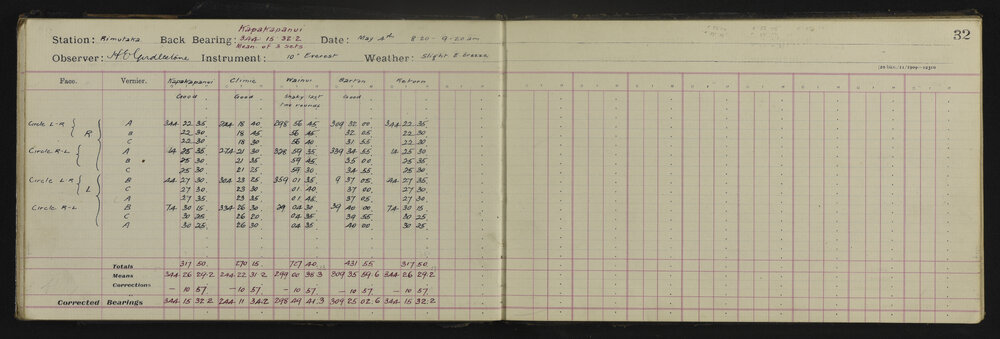 Kapakapanui
Station: Rimutaka Back Bearing: 344 15 32.2 Date: May 4th 8-20 - 9-20am 32
Mean of 3 sets
Observer: H E Girdlestone Instrument: 10" Everest Weather: Slight E breeze
Face. Vernier. Kapakapanui Climie Wainui Barton Return
Good Good Shaky last Good
two rounds
Circle L-R R A 344 22 35 244 18 40 298 56 45 309 32 00 344 22 35
B 22 30 18 45 56 45 32 05 22 30
C 22 30 18 30 56 40 31 55 22 30
Circle R-L A 14 25 35 274 21 30 328 59 35 339 34 55 14 25 30
B 25 30 21 35 59 45 35 00 25 35
C 25 30 21 25 59 30 34 55 25 30
Circle L-R L B 44 27 30 304 23 25 359 01 35 9 37 05 44 27 35
C 27 30 23 30 01 40 37 00 27 30
A 27 35 23 35 01 45 37 05 27 30
Circle R-L B 74 30 15 334 26 30 29 04 30 39 40 00 74 30 15
C 30 25 26 20 04 35 39 55 30 25
A 30 25 26 30 04 35 40 00 30 25
Totals 317 50 270 15 727 40 431 55 317 50
Means 344 26 29.2 244 22 31.2 299 00 38.3 309 35 59.6 344 26 29.2
Corrections - 10 57 - 10 57 - 10 57 - 10 57 - 10 57
Corrected Bearings 344 15 32.2 244 11 34.2 298 49 41.3 309 25 02.6 344 15 32.2